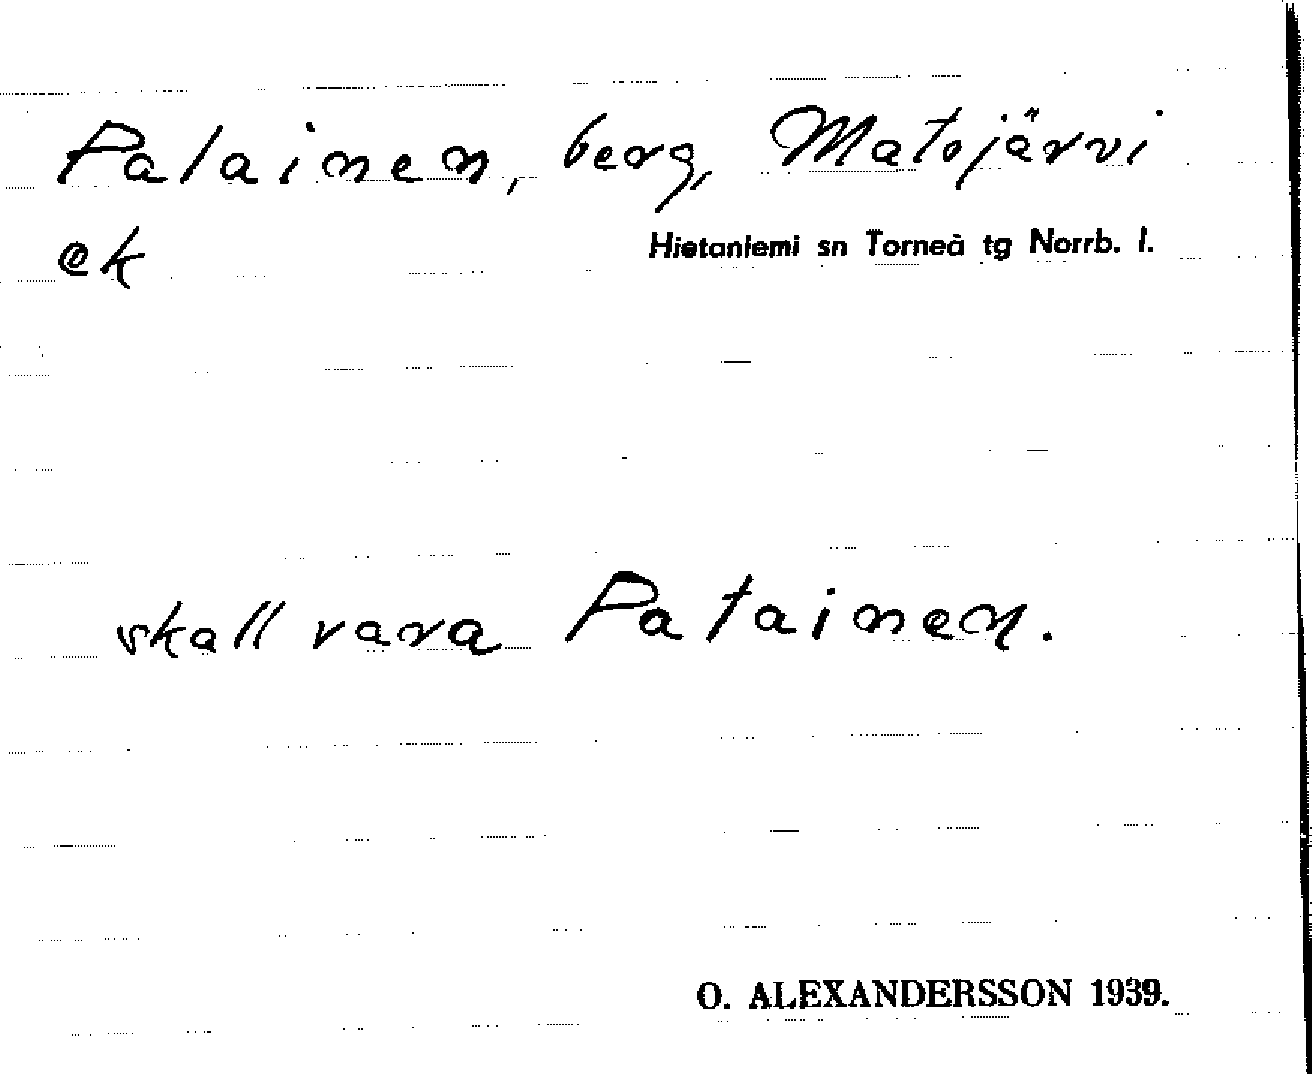 Palainen, berg, Matojärvi
ek
Hietaniemi sn Torneå tg Norrb. l.
skall vara Patainen.
O. ALEXANDERSSON 1939.